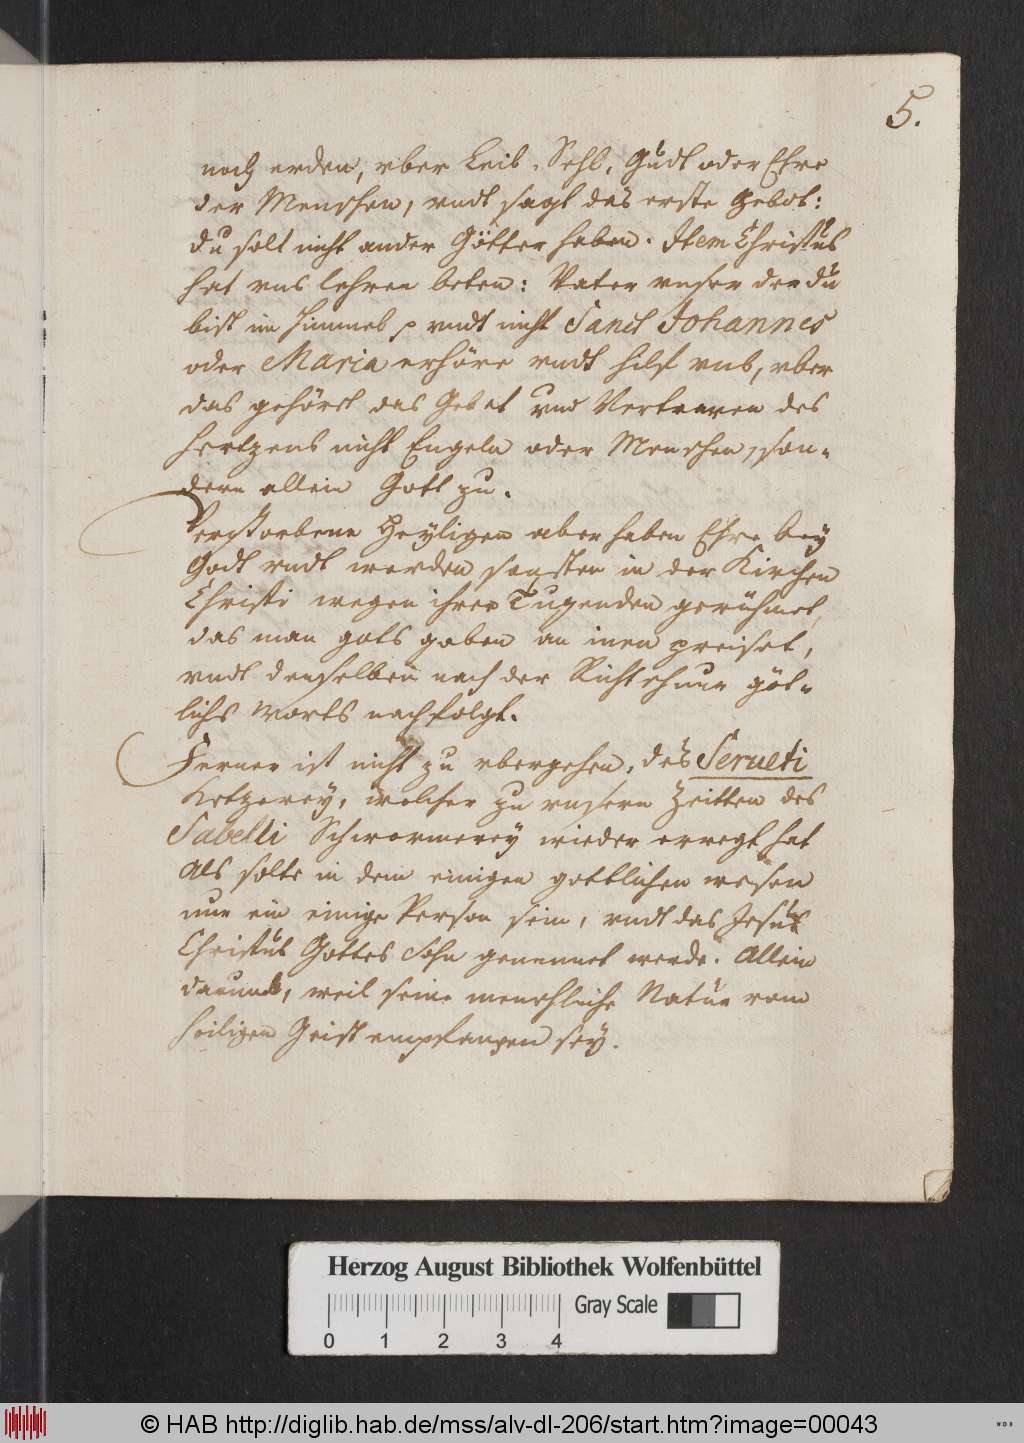 5.
noch erden, vber Leib, Sehl, Gudt oder Ehre
der Menschen, vndt sagt das erste Gebot:
du solt nicht ander Götter haben. Item Christus
hat vns lehren beten: Vater vnser der du
bist im Himmel p vndt nicht Sanct Johannes
oder Maria erhöre vndt hilf vns, vber
das gehöret das Gebet vnd Vertrawen des
Hertzens nicht Engeln oder Menschen, son-
dern allein Gott zu.
Verstorbene Heyligen aber haben Ehre bey
Godt vndt werden sonsten in der Kirchen
Christi wegen ihrer Tugenden gerühmet,
das man gots gaben an inen preiset,
vndt denselben nach der Richtschnur göt-
lichs Worts nachfolgt.
Ferner ist nicht zu vbergehen, des Serueti
Ketzerey, welcher zu vnsern Zeitten des
Sabelli Schwermerey wieder erregt hat
Als solte in dem einigen gottlichen wesen
nur ein einige Person sein, vndt das Jesus
Christus Gottes Sohn genennet werde. Allein
darumb, weil seine menschliche Natur vom
heiligen Geist empfangen sey.
Herzog August Bibliothek Wolfenbüttel
0 1 2 3 4 Gray Scale
© HAB http://diglib.hab.de/mss/alv-dl-206/start.htm?image=00043